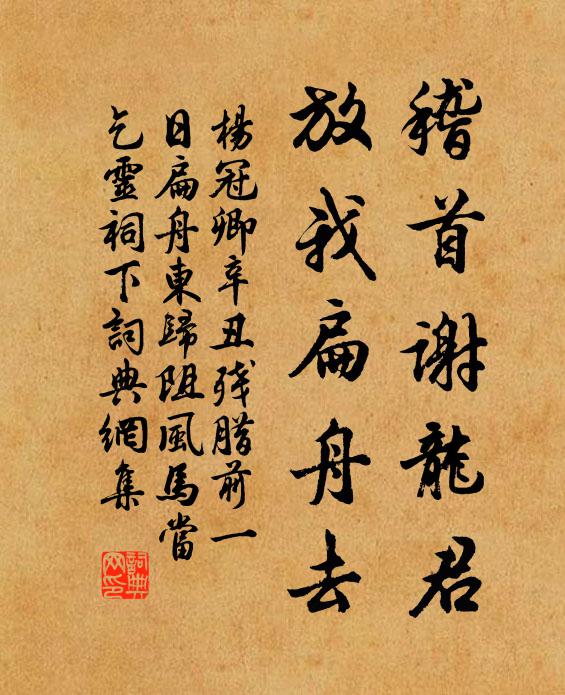 稽首謝龍君
放我扁舟去
楊冠卿辛丑殘腊前一
日扁舟東歸阻風馬當
乞靈祠下詞典網集
詞典
网印